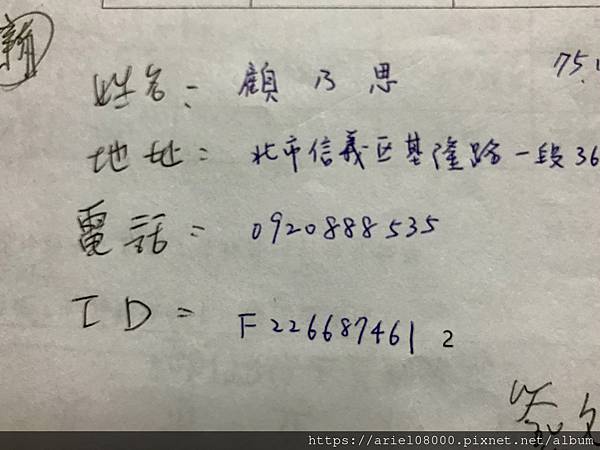 輔
75.
姓名: 顧乃思
地址: 北市信義区基隆路一段36
電話: 0920888535
ID: F226687461 2
https://ariel08000.pixnet.net/album